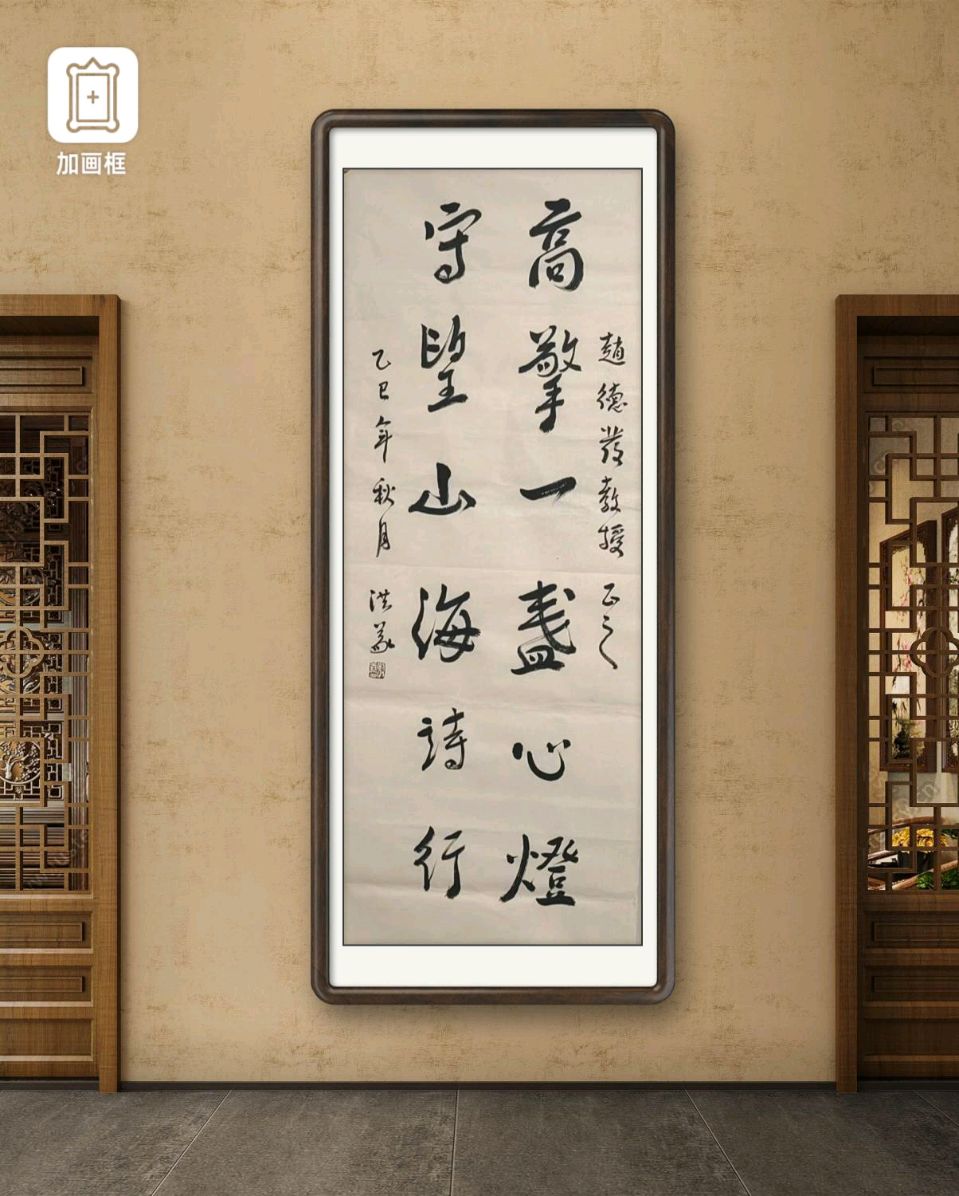 加画框
趙德發教授正之
高擎一盞心燈
守望山海詩行
乙巳年秋月
洪義